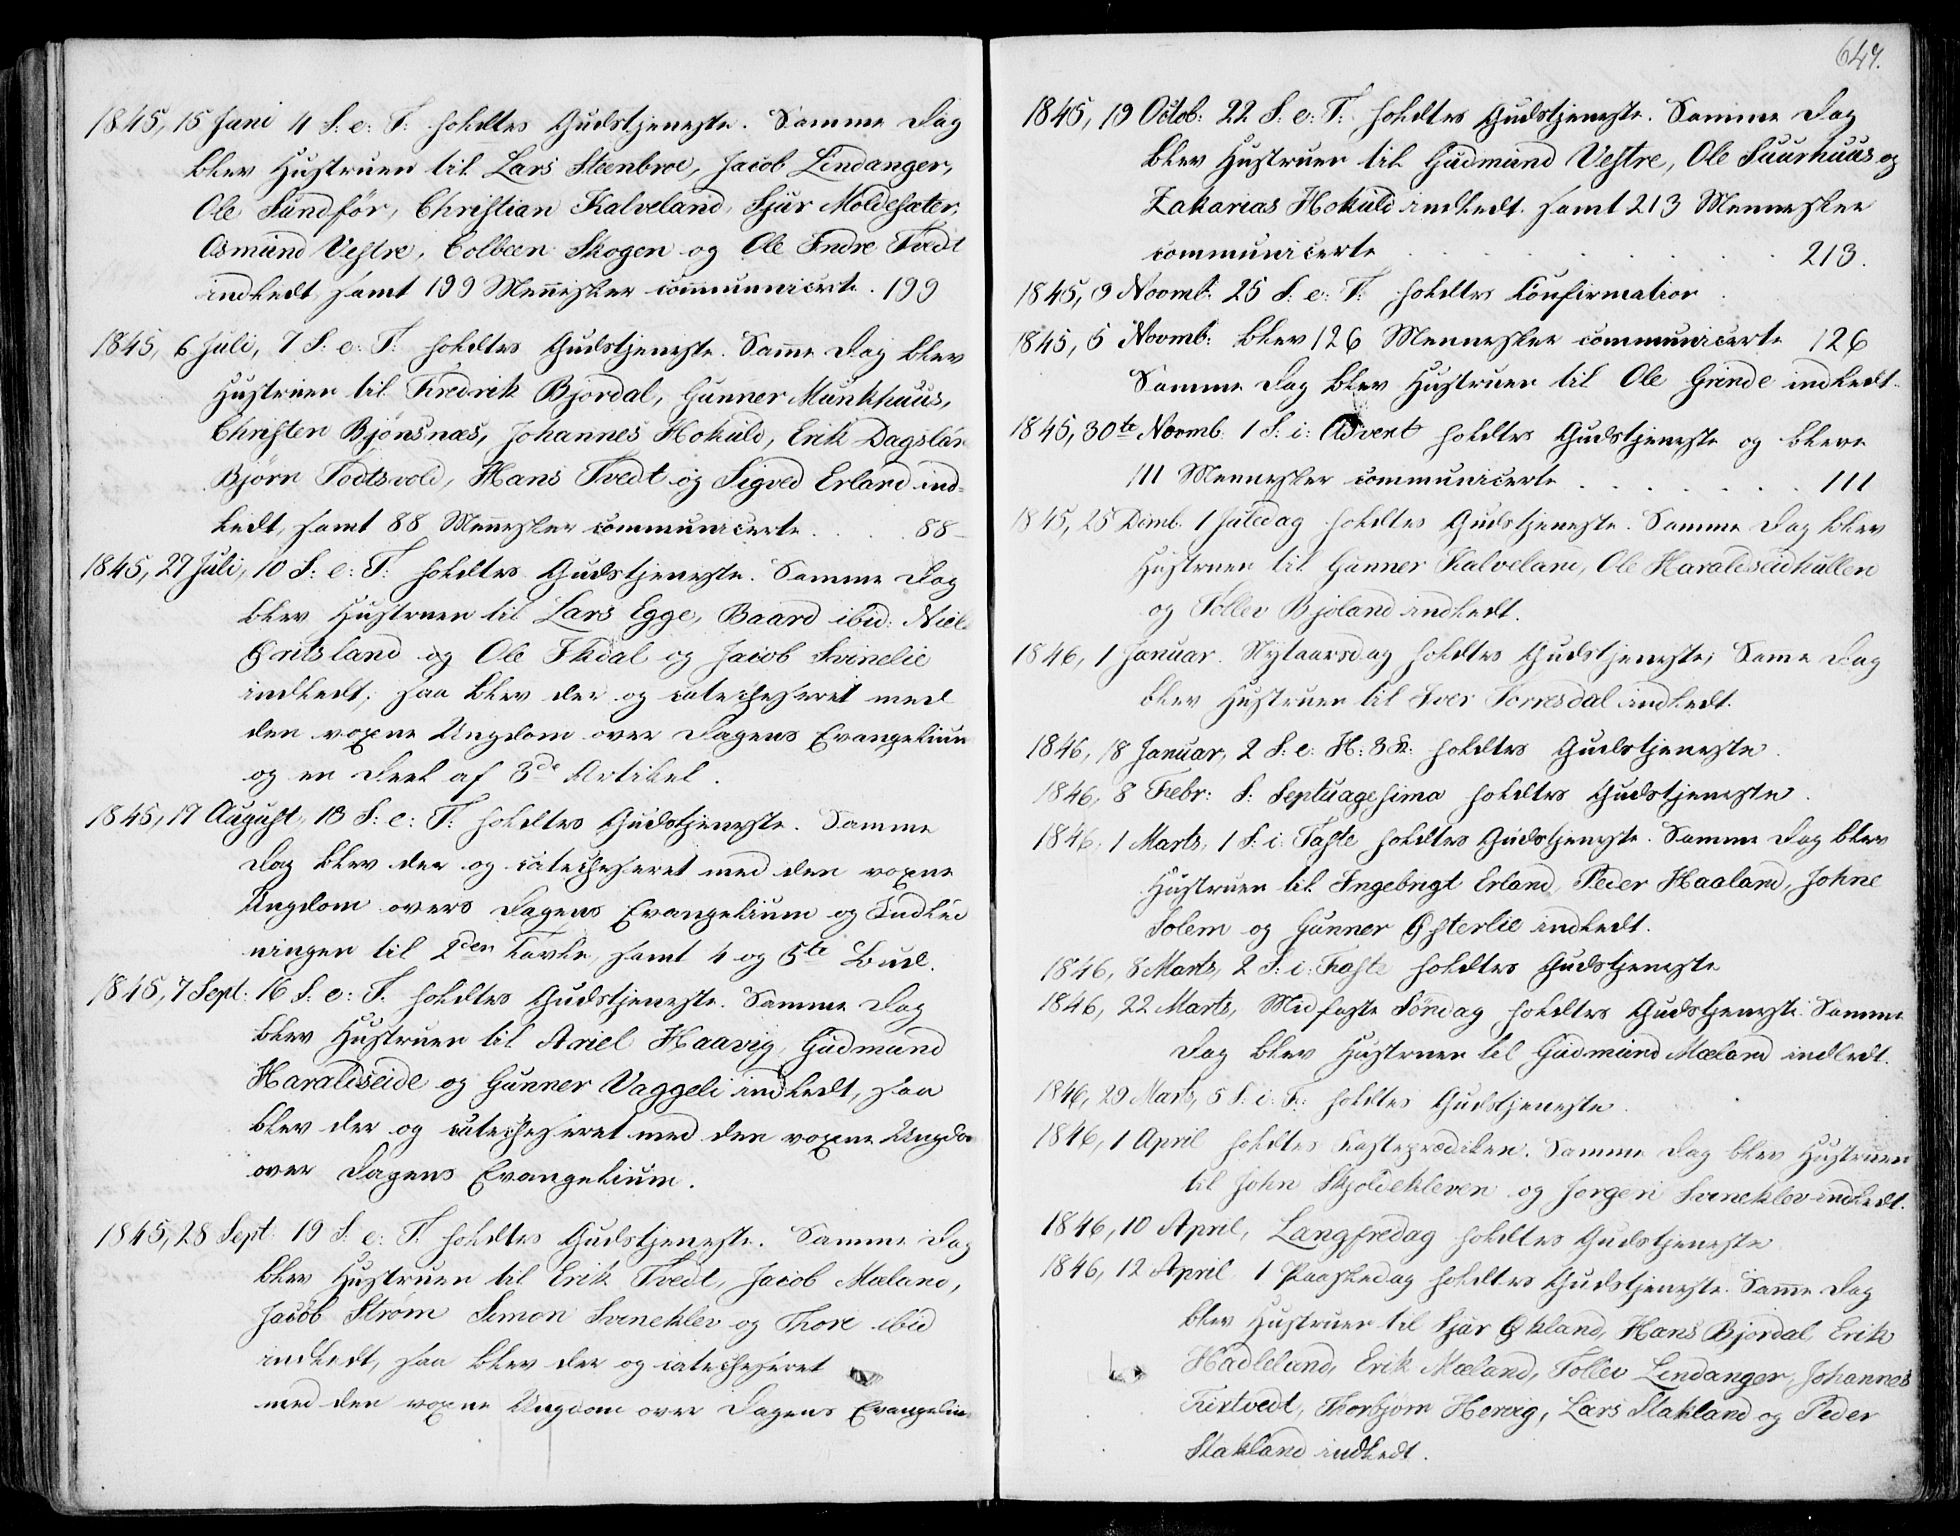 1845, 15 Juni 4 S: e: T: holdtes Gudstjeneste. Samme Dag
blev Hustruen til Lars Steenbroe, Jacob Lindanger,
Ole Sandför, Christian Kalveland, Sjur Moldesæter,
Osmund Vestre, Colbeen Skogen og Ole Indre Tvedt
indledt, samt 199 Mennisker communicerte. 199
1845, 6 Juli, 7 S: e: T: holdtes Gudstjeneste. Same Dag blev
Hustruen til Fredrik Bjordal, Gunner Munkhuus,
Christen Bjönsnæs, Johannes Hokuld, Erik Dagslan
Bjørn Todtsvold, Hans Tvedt og Sigved Erland ind-
ledt, samt 88 Mennesker communicerte . . . 88 -
1845, 27 Juli, 10 S: e: T: holdtes Gudstjeneste. Samme Dag
blev Hustruen til Lars Egge, Baard ibid: Niels
Øritsland og Ole Ekdal og Jacob Svinelie
indledt; saa blev der og catecheseret med
den voxne Ungdom over Dagens Evangelium
og en Deel af 3de Artikel.
1845, 17 August, 13 S: e: T: holdtes Gudstjeneste. Samme
Dag blev der og catecheseret med den voxne
Ungdom overs Dagens Evangelium og Indled
ningen til 2den Tavle, samt 4 og 5te Bud.
1845, 7 Sept: 16 S: e: T: holdtes Gudstjeneste. Samme Dag
blev Hustruen til Ariel Haavig, Gudmund
Haraldseide og Gunner Vaggeli indledt, saa
blev der og catecheseret med den voxne Ungdo
over Dagens Evangelium.
1845, 28 Sept: 19 S: e: T: holdtes Gudstjeneste. Samme Dag
blev Hustruen til Erik Tvedt, Jacob Mæland,
Jacob Strøm Simon Svineklev og Thore ibid
indledt, saa blev der og catecheseret
med den voxne Ungdom over Dagens Evangelium
647.
1845, 19 Octob: 22 S: e: T: holdtes Gudstjeneste. Samme Dag
blev Hustruen til Gudmund Vestre, Ole Suurhuus og
Zakarias Hokuld indledt. samt 213 Mennesker
communicerte . . . . . . . 213.
1845, 9 Novmb: 25 S: e: T: holdtes Confirmation.
1845, 5 Novmb: blev 126 Mennesker communicerte 126
Samme Dag blev Hustruen til Ole Grinde indledt.
1845, 30te Novmb: 1 S: i: Advent holdtes Gudstjeneste og bleve
111 Mennesker communicerte . . . . . . . 111
1845, 25 Decmb. 1 Juledag holdtes Gudstjeneste. Samme Dag blev
Hustruen til Gunner Kalveland, Ole Haraldseidhullen
og Tollev Bjoland indledt.
1846, 1 Januar. Nytaarsdag holdtes Gudstjeneste; Same Dag
blev Hustruen til Iver Torresdal indledt.
1846, 18 Januar, 2 S: e: H: 3 K: holdtes Gudstjeneste.
1846, 8 Febr: S: Septuagesima holdtes Gudstjeneste.
1846, 1 Marts, 1 S: i: Faste holdtes Gudstjeneste. Samme Dag blev
Hustruen til Ingebrigt Erland, Peder Haaland, Johne
Solem og Gunner Østerlie indledt.
1846, 8 Marts, 2 S: i: Faste holdtes Gudstjeneste
1846, 22 Marts, Midfaste Söndag holdtes Gudstjeneste. Samme
Dag blev Hustruen til Gudmund Mæland indledt.
1846, 29 Marts, 5 S: i: F: holdtes Gudstjeneste.
1846, 1 April holdtes Fasteprædiken. Samme Dag blev Hustruen
til John Skjoldekleven og Jorgen Svineklev indledt.
1846, 10 April, Langfredag holdtes Gudstjeneste
1846, 12 April 1 Paaskedag holdtes Gudstjeneste. Same Dag
blev Hustruen til Sjur Økland, Hans Bjordal Erik
Hadleland, Erik Mæland, Tollev Lindanger, Johannes
Tvedt, Thorbjørn Hervig, Lars Stakland og Peder
Stakland indledt.